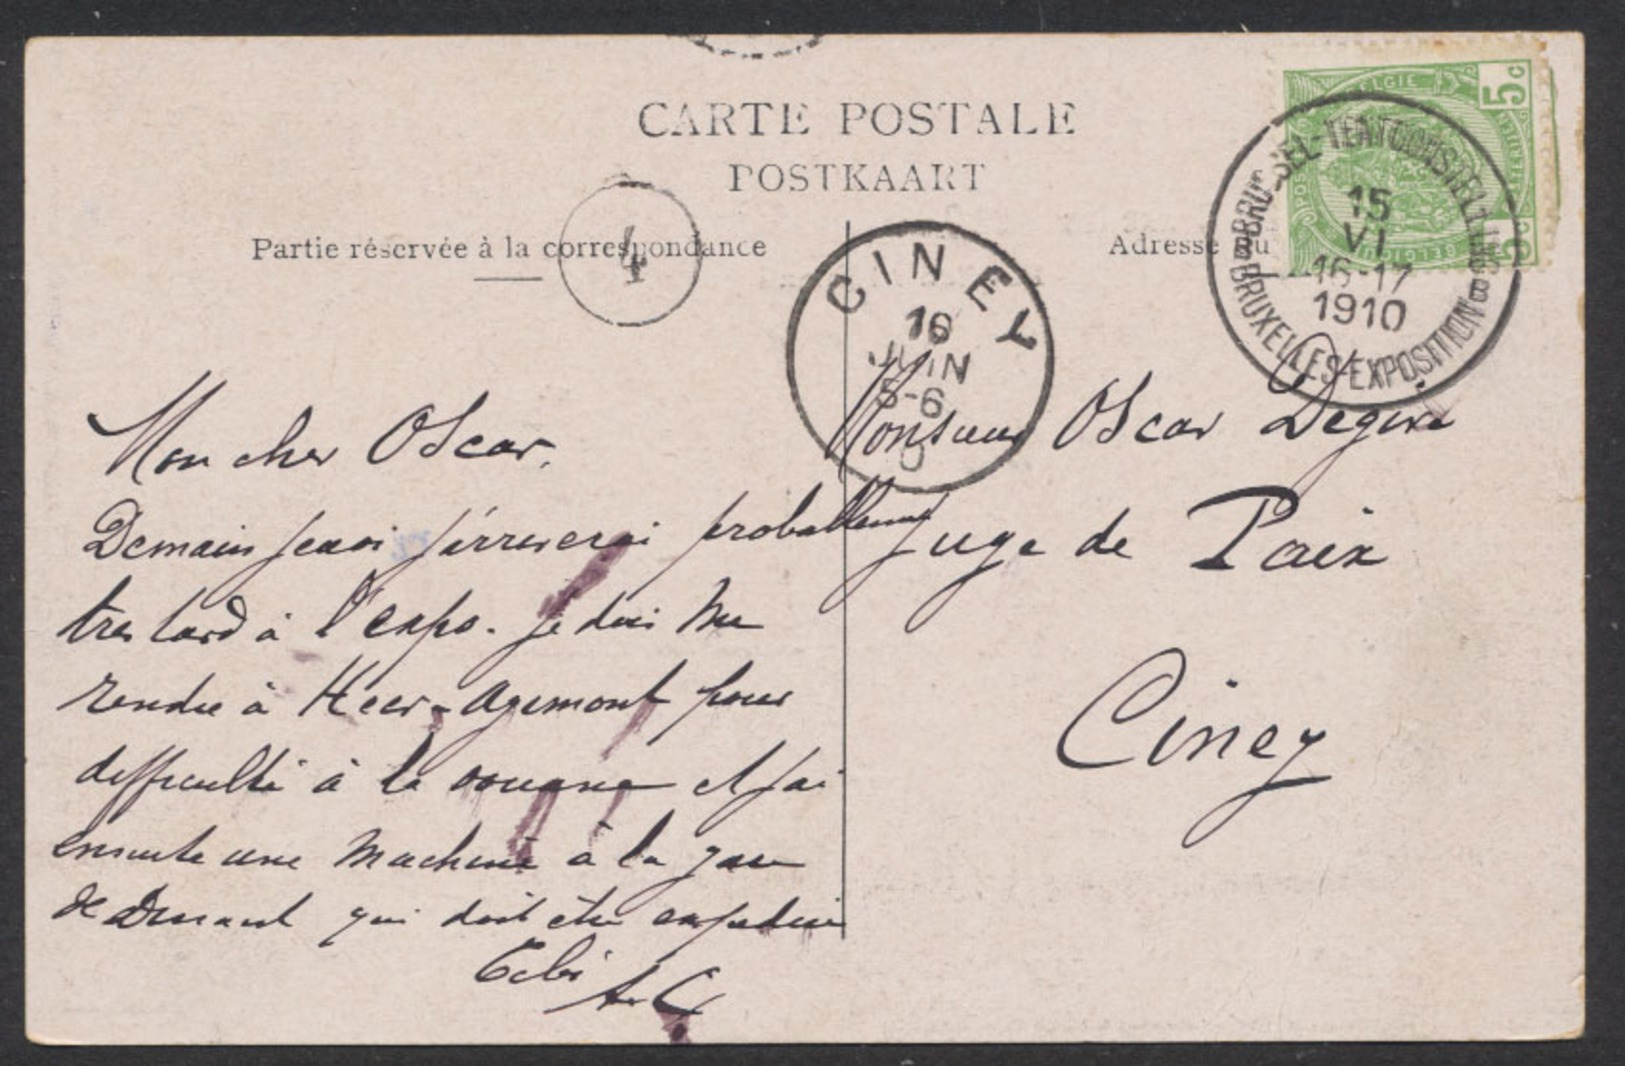 CARTE POSTALE
POSTKAART
Partie réservée à la correspondance
Adresse du
4
CINEY
16
JUIN
5-6
BELGIE 5c
BELGIQUE 5c
BRUSSEL-TENTOONSTELLING
15
VI
16-17
1910
BRUXELLES-EXPOSITION
B
B
Mon cher Oscar.
Demain jeudi j'arriverai probablement
tres tard à l'expo. je dois me
rendre à Heer-Agimont pour
difficulté à la douane et j'ai
ensuite une machine à la gare
de Dinant qui doit être expédiée
Monsieur Oscar
Juge de Paix
Ciney